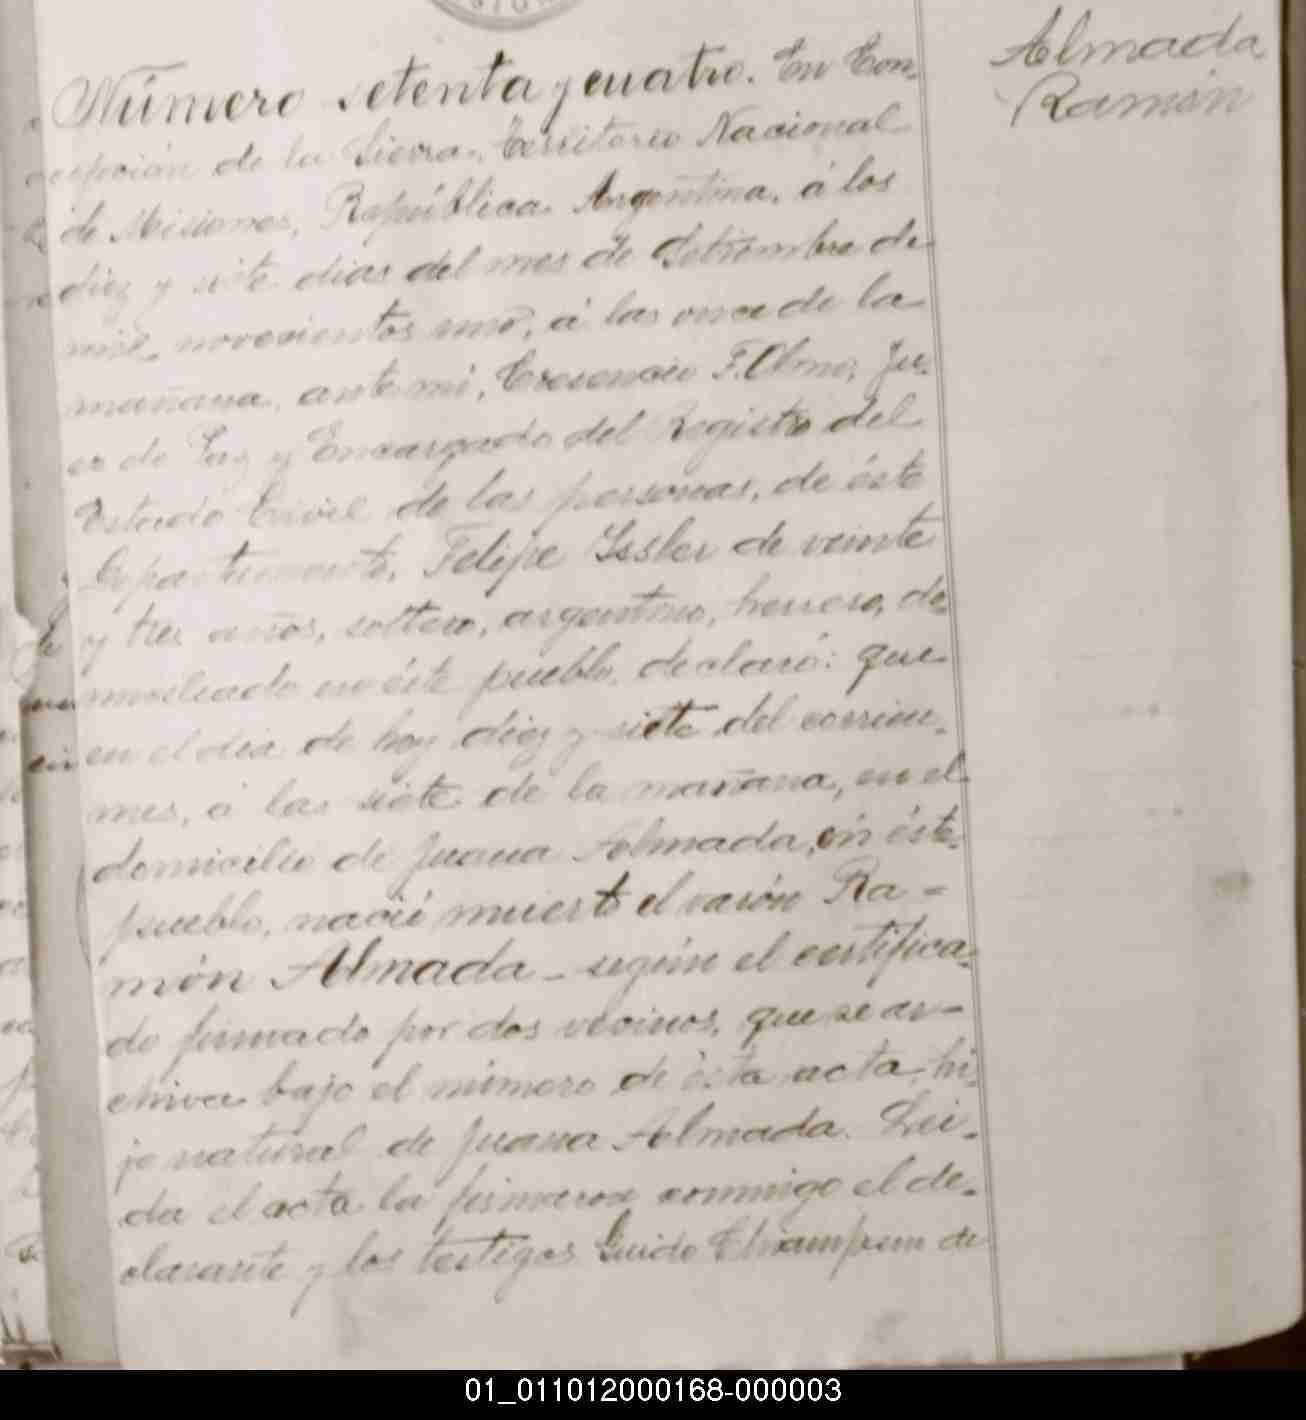 Almada
Ramón
Número setenta y cuatro. En Con-
cepción de la Sierra, Territorio Nacional
de Misiones, República Argentina, á los
diez y siete dias del mes de Setiembre de
mil novecientos uno, á las once de la
mañana, ante mi, Cresencio F. Olmo, Ju-
ez de Paz y Encargado del Registro del
Estado Civil de las personas, de éste
Departamento, Felipe Issler de veinte
y tres años, soltero, argentino, herrero, do-
miciliado en éste pueblo, declaró: que
en el dia de hoy diez y siete del corrien-
mes, á las siete de la mañana, en el
domicilio de Juana Almada, en éste
pueblo, nació muerto el varón Ra-
món Almada - según el certifica-
do firmado por dos vecinos, que se ar-
chiva bajo el número de ésta acta, hi-
jo natural de Juana Almada. Lei-
da el acta la firmaron conmigo el de-
clarante y los testigos Guido de
01_011012000168-000003